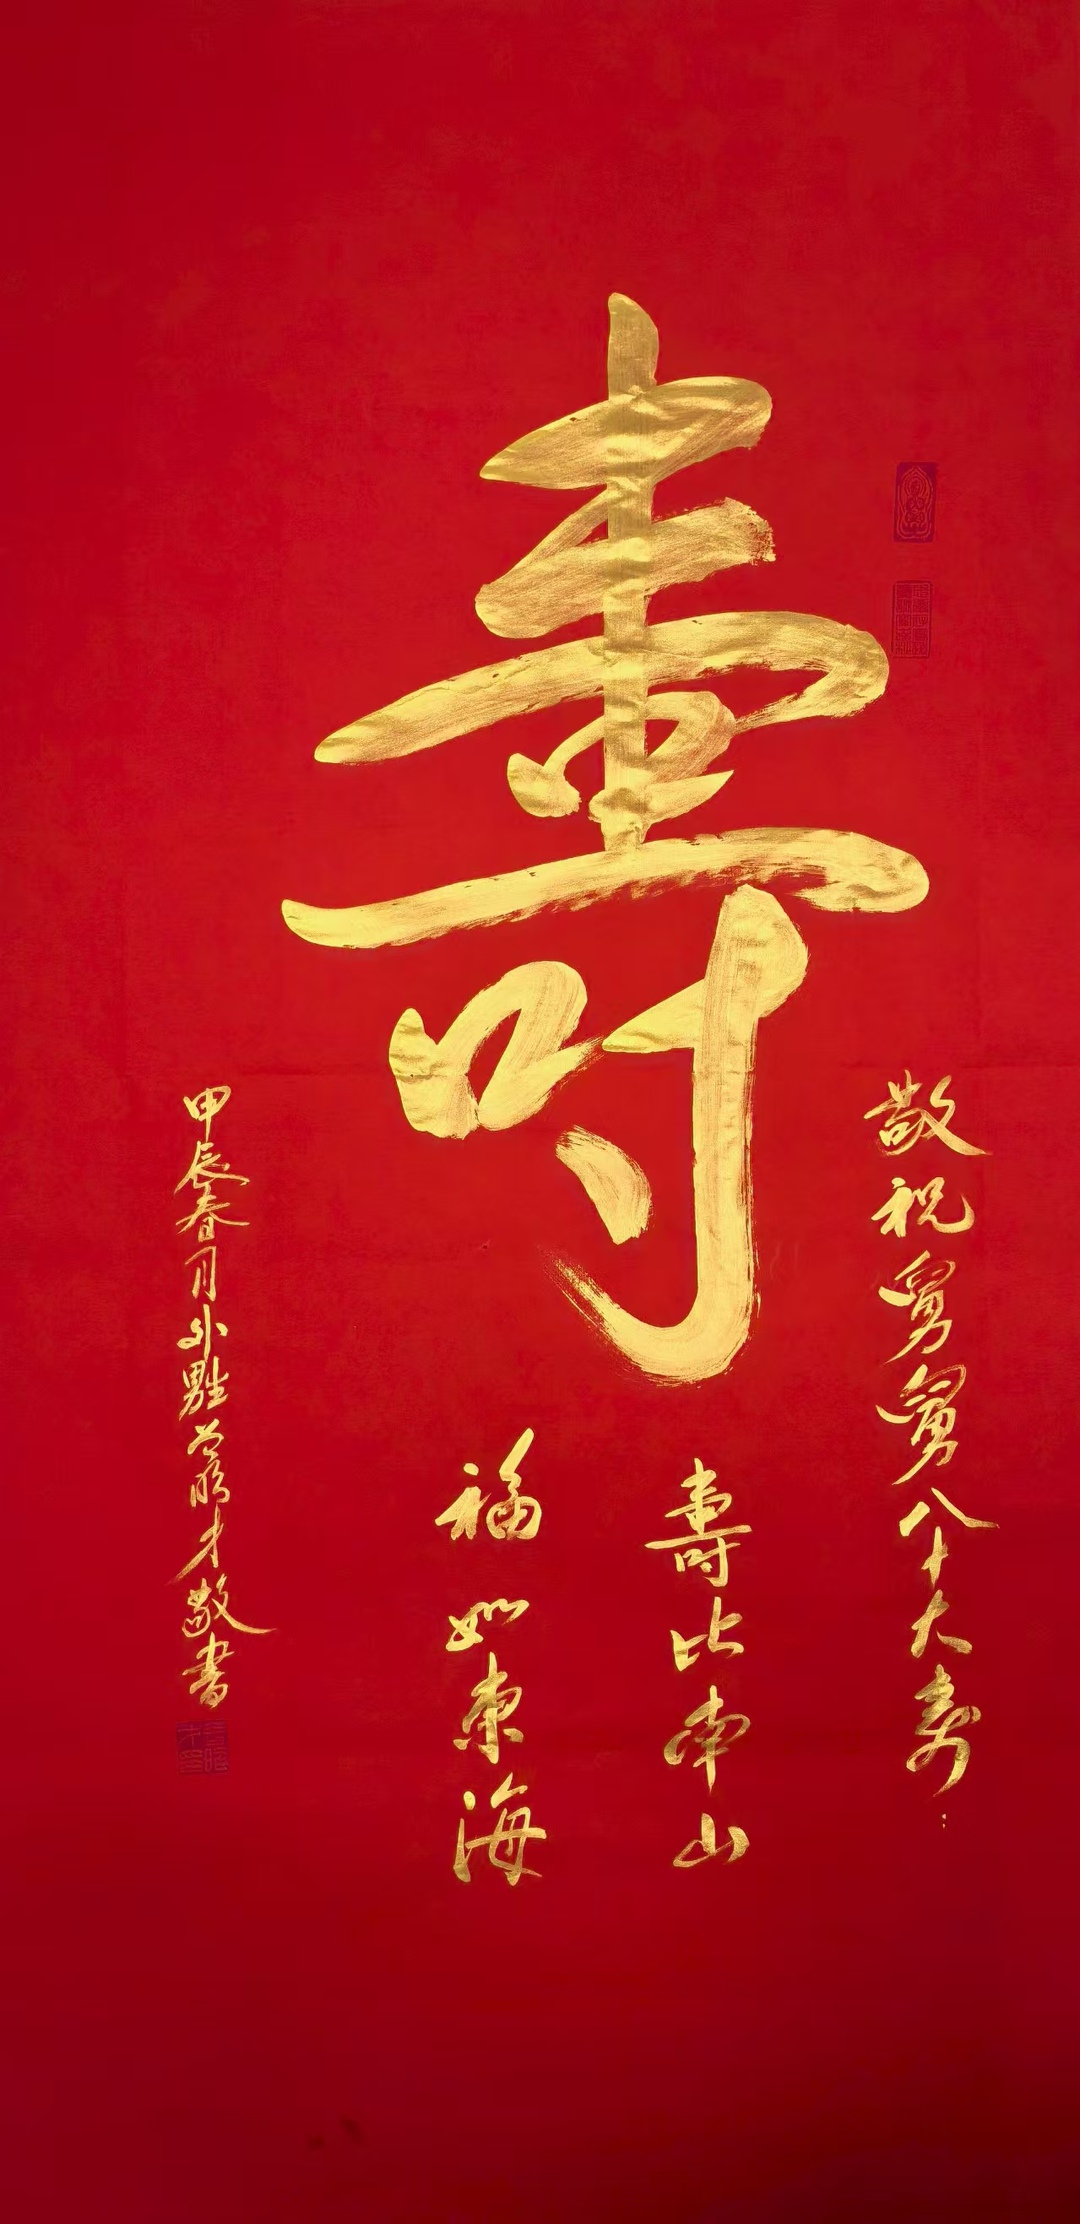 壽
敬祝舅舅八十大寿：
壽比南山
福如東海
甲辰春月外甥明才敬書